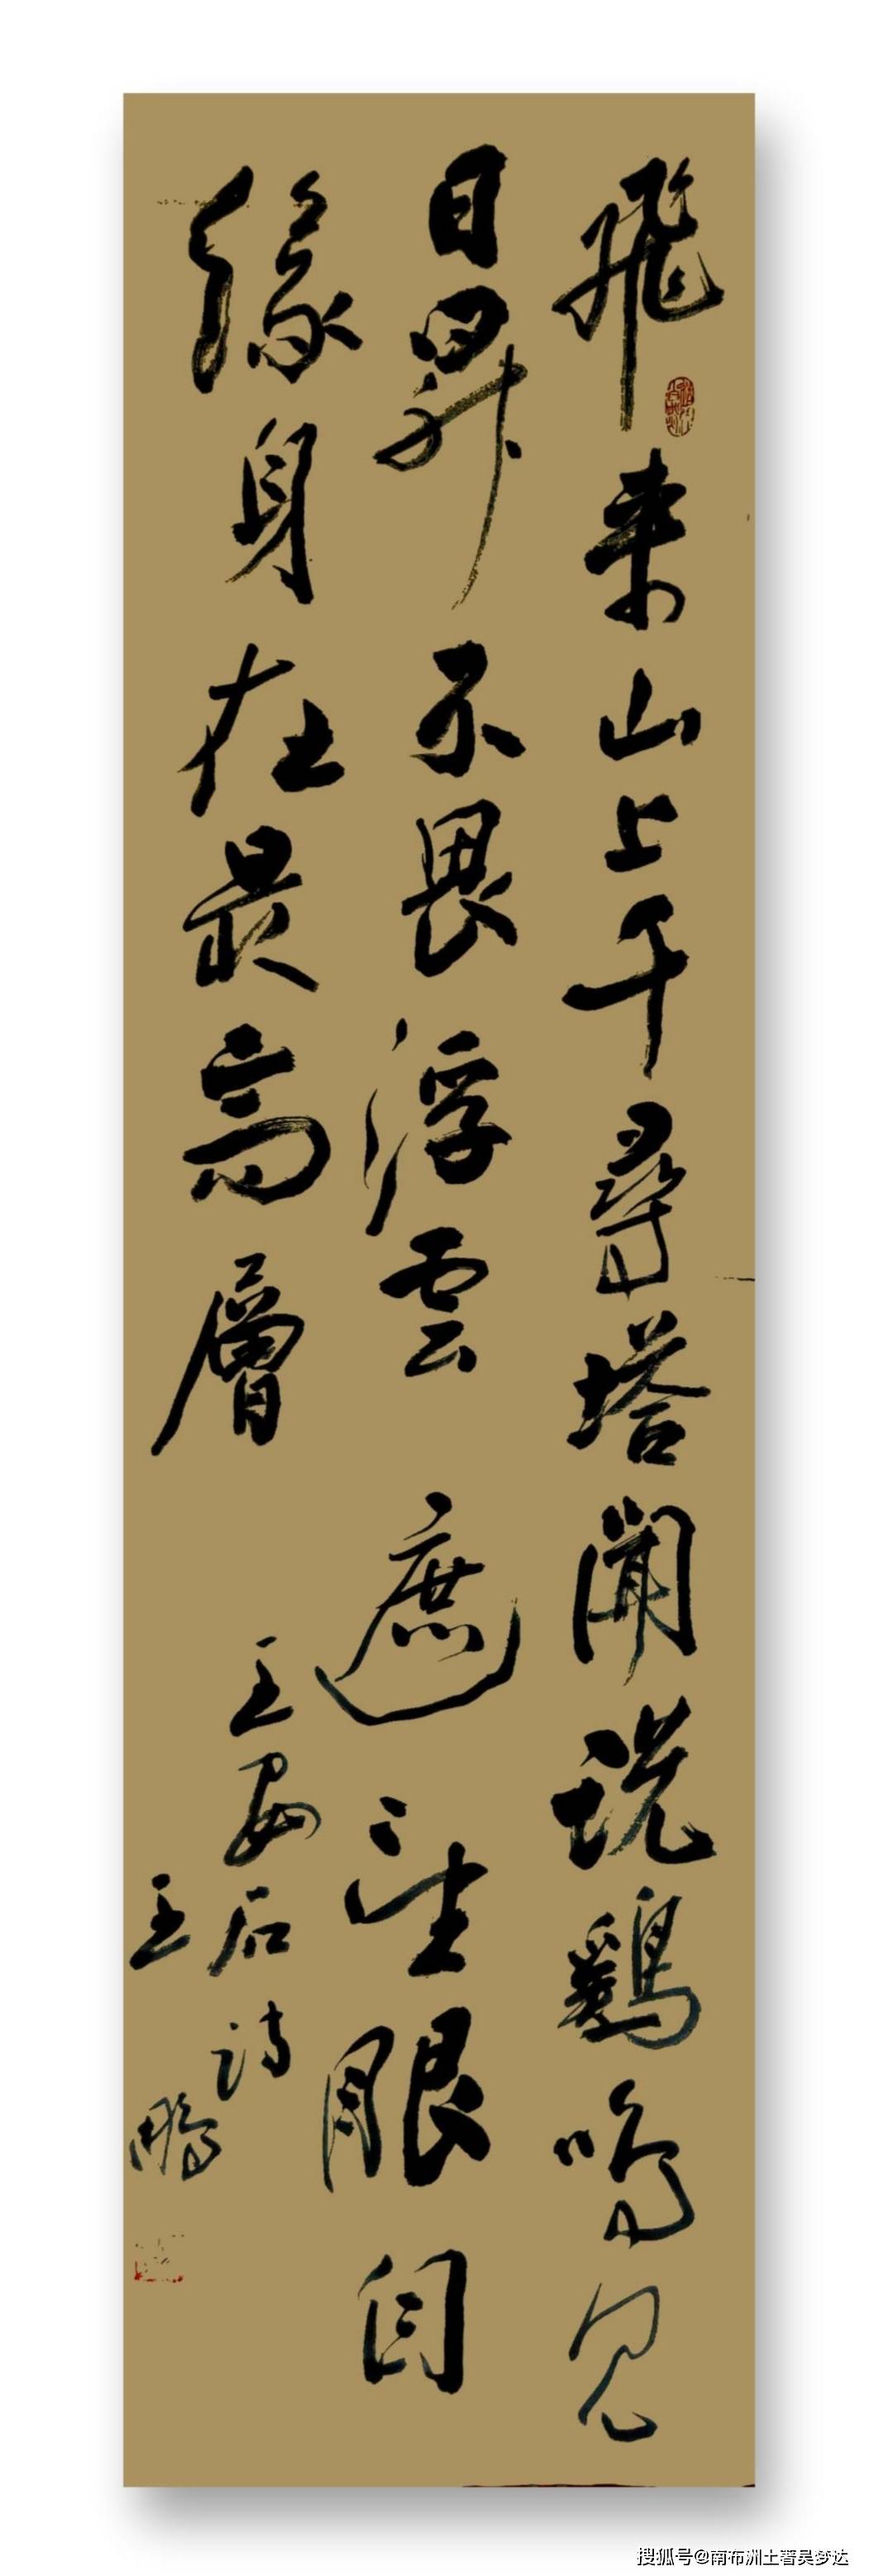 飛来山上千尋塔聞説鷄鳴見
日昇不畏浮雲遮望眼自
緣身在最高層
王安石詩
王鵬
搜狐号@南布洲土著吴梦达